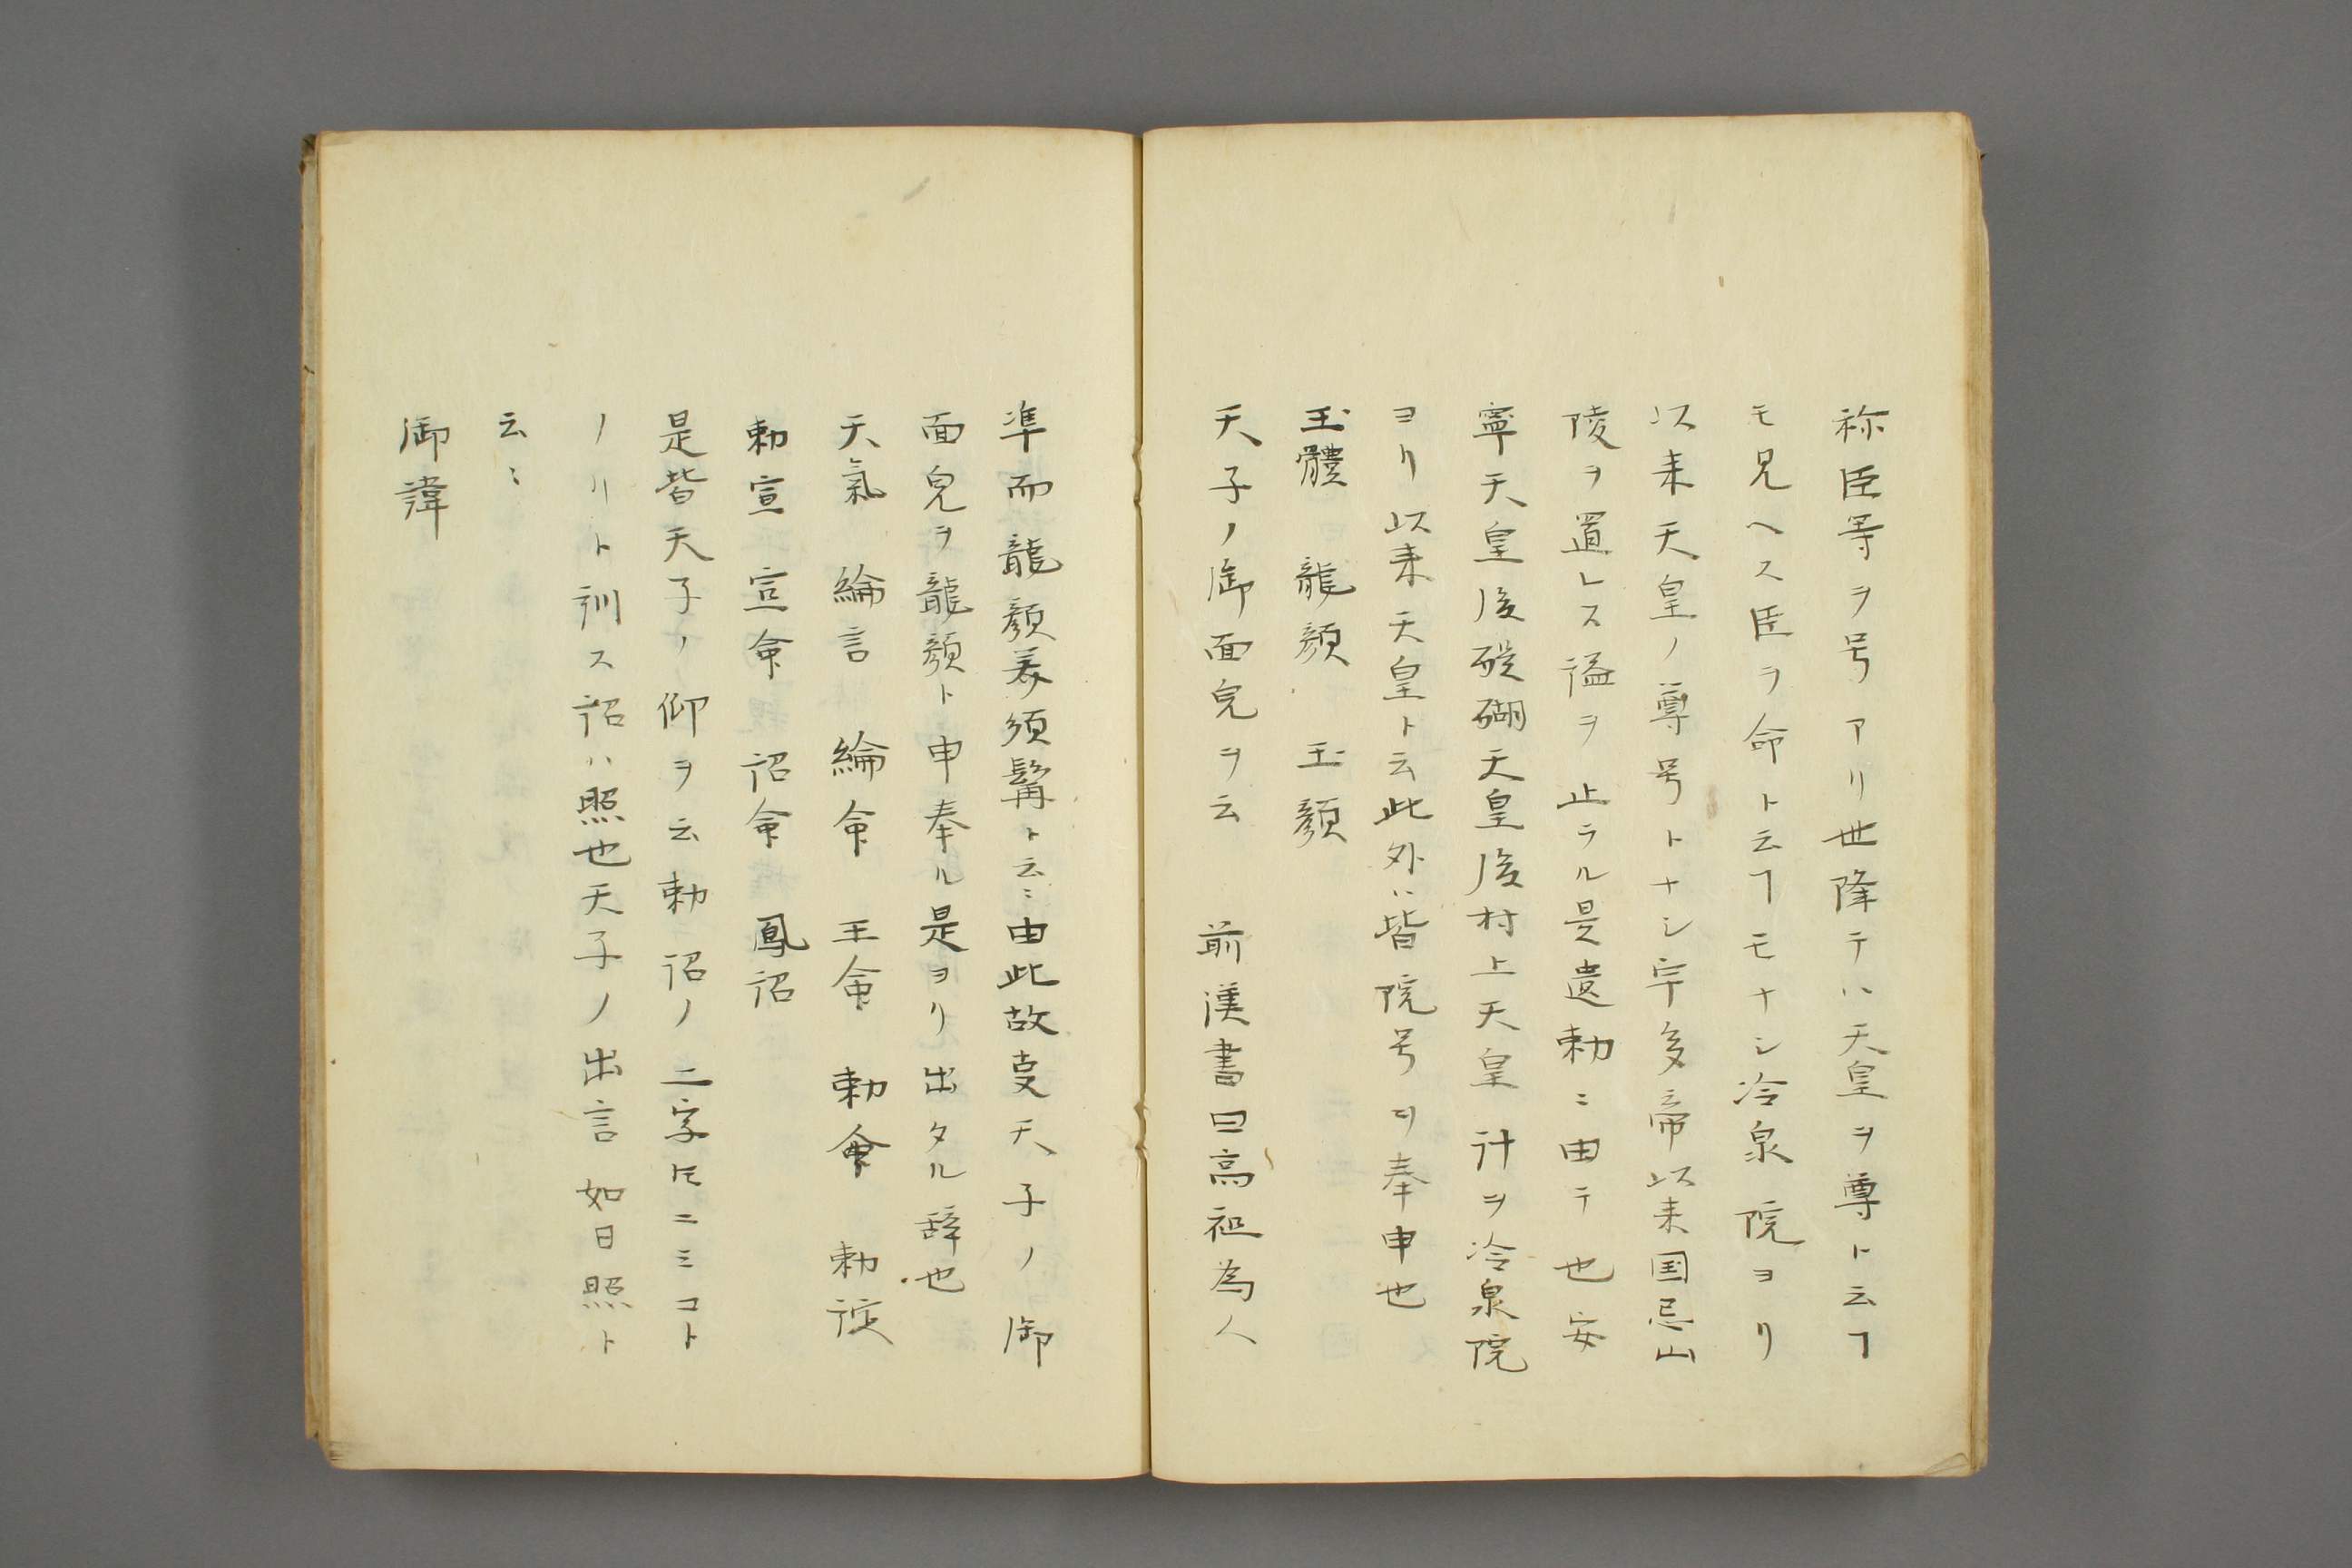 祢臣等ヲ号アリ世降テハ天皇ヲ尊ト云ヿ
モ見ヘス臣ヲ命ト云ヿモナシ冷泉院ヨリ
以来天皇ノ尊号トナシ宇多帝以来国忌山
陵ヲ置レス諡ヲ止ラル是遺勅ニ由テ也安
寧天皇後醍醐天皇後村上天皇計ヲ冷泉院
ヨリ以来天皇ト云此外ハ皆院号ヲ奉申也
玉體　龍顔　玉顔
天子ノ御面皃ヲ云　前漢書曰高祖為人
準而龍顔美須髯ト云〻由此故叓天子ノ御
面皃ヲ龍顔ト申奉ル是ヨリ出タル辞也
天氣　綸言　綸命　王命　勅命　勅諚
勅宣　宣命　詔命　鳳詔
是皆天子ノ仰ヲ云勅詔ノ二字𪜈ニミコト
ノリト訓ス詔ハ照也天子ノ出言如日照ト
云〻
御諱